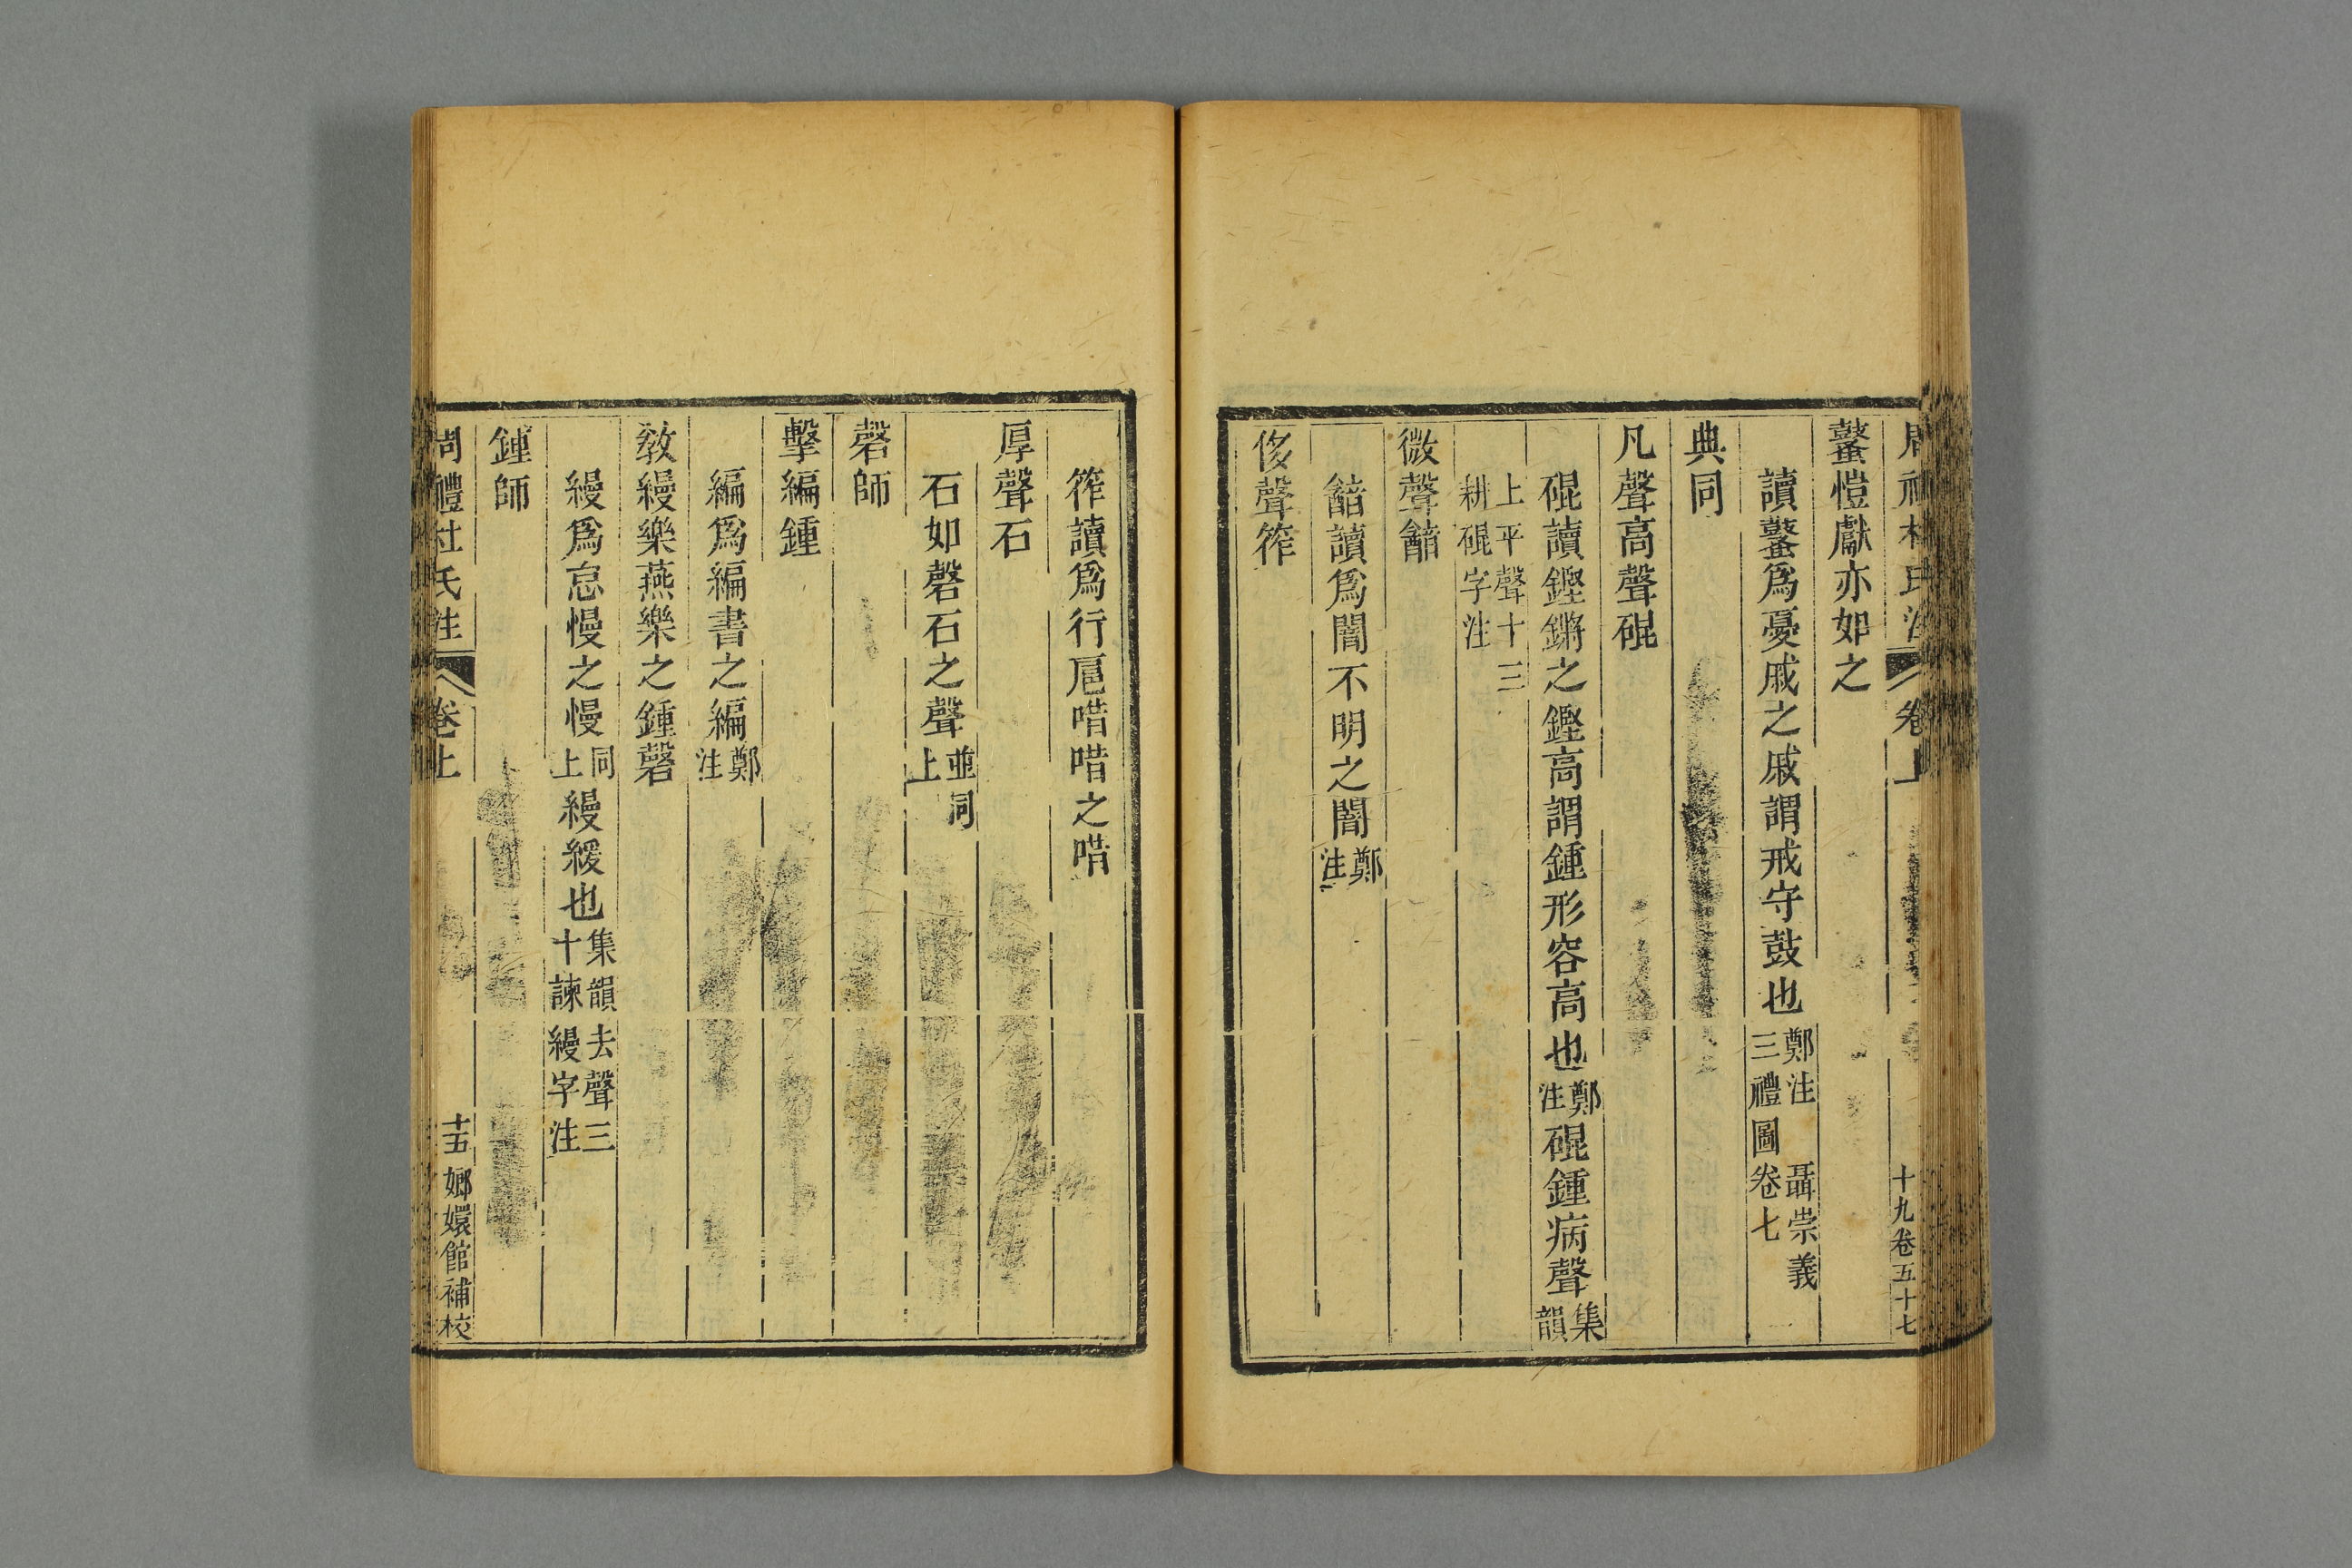 周禮杜氏注 卷上 十九卷五十七
鼜愷獻亦如之
讀鼜爲憂戚之戚謂戒守鼓也鄭注 聶崇義三禮圖卷七
典同
凡聲高聲硍
硍讀鏗鏘之鏗高謂鍾形容高也鄭注硍鍾病聲集韻
上平聲十三耕硍字注
微聲韽
韽讀爲闇不明之闇鄭注
侈聲筰
筰讀爲行扈唶唶之唶
厚聲石
石如磬石之聲並同上
磬師
擊編鍾
編爲編書之編鄭注
教縵樂燕樂之鍾磬
縵爲怠慢之慢同上縵緩也集韻去聲三十諫縵字注
鍾師
周禮杜氏注 卷上 十五 嫏嬛館補校